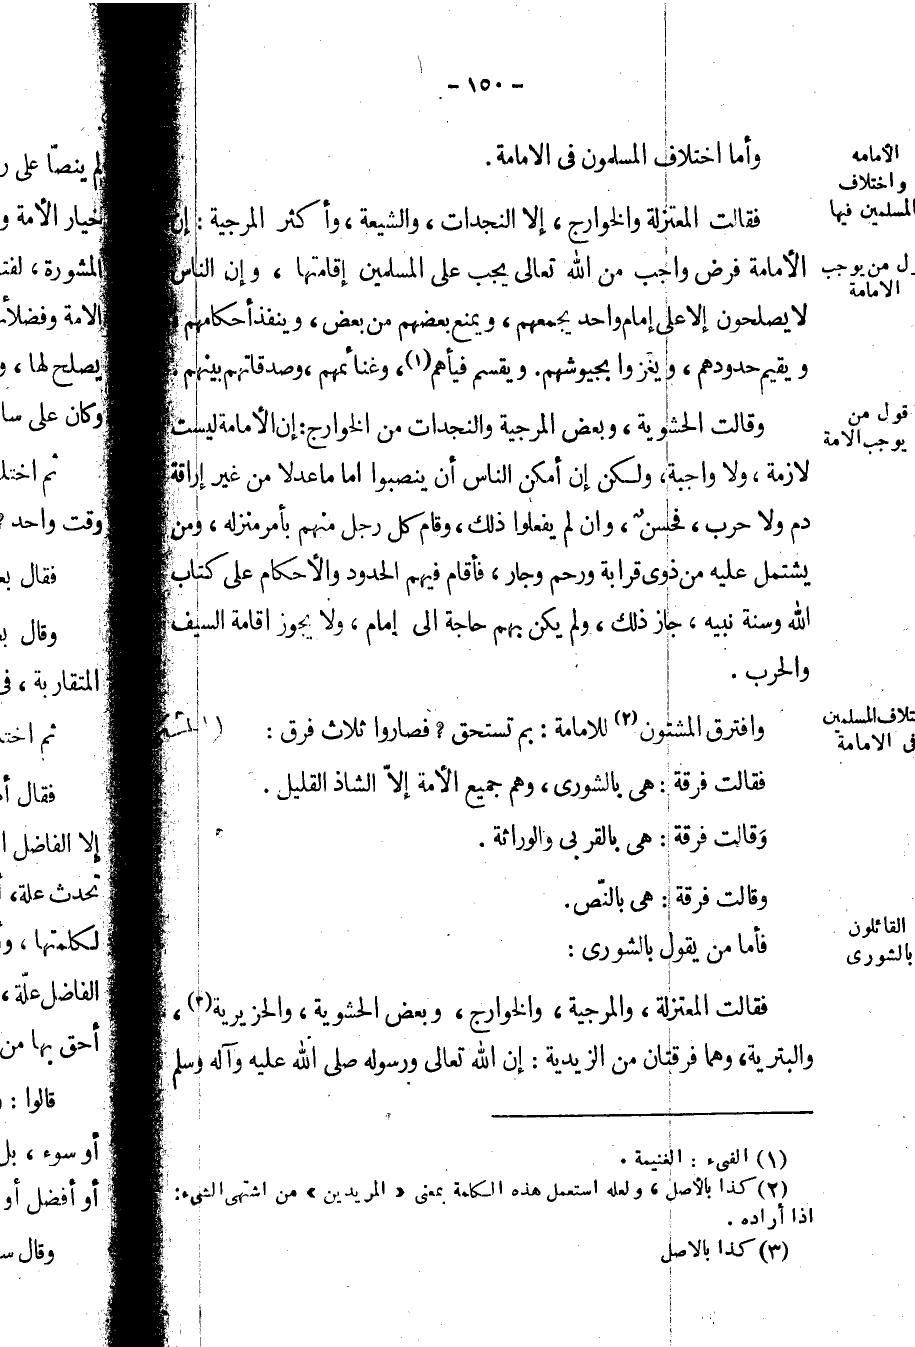 - ١٥٠ -
الأمامه
واختلاف
المسلمين فيها
وأما اختلاف المسلمون فى الامامة .
فقالت المعتزلة والخوارج ، إلا النجدات ، والشيعة ، وأكثر المرجية : إن
من يوجب
الامامة
الأمامة فرض واجب من الله تعالى يجب على المسلمين إقامتها ، وإن الناس
لا يصلحون إلا على إمام واحد يجمعهم ، ويمنع بعضهم من بعض ، وينفذ أحكامهم
ويقيم حدودهم ، ويغزوا بجيوشهم . ويقسم فيأهم (١) ، وغنائمهم ، وصدقاتهم بينهم .
قول من
يوجب الامة
وقالت الحشوية ، وبعض المرجية والنجدات من الخوارج : إن الأمامة ليست
لازمة ، ولا واجبة ، ولكن إن أمكن الناس أن ينصبوا اما ما عدلا من غير إراقة
دم ولا حرب ، فحسنٌ ، وان لم يفعلوا ذلك ، وقام كل رجل منهم بأمر منزله ، ومن
يشتمل عليه من ذوى قرابة ورحم وجار ، فأقام فيهم الحدود والأحكام على كتاب
الله وسنة نبيه ، جاز ذلك ، ولم يكن بهم حاجة الى إمام ، ولا يجوز اقامة السيف
والحرب .
المسلمين
فى الامامة
وافترق المشتون (٢) للامامة : بم تستحق ؟ فصاروا ثلاث فرق :
فقالت فرقة : هى بالشورى ، وهم جميع الأمة إلاّ الشاذ القليل .
وَقالت فرقة : هى بالقربى والوراثة .
وقالت فرقة : هى بالنّص .
القائلون
بالشورى
فأما من يقول بالشورى :
فقالت المعتزلة ، والمرجية ، والخوارج ، وبعض الحشوية ، والحزيرية (٣) ،
والبترية، وهما فرقتان من الزيدية : إن الله تعالى ورسوله صلى الله عليه وآله وسلم
(١) الفىء : الغنيمة .
(٢) كذا بالأصل ، ولعله استعمل هذه الكلمة بمعنى « المريدين » من اشتهى الشىء :
اذا أراده .
(٣) كذا بالاصل
لم ينصّا على
خيار الأمة و
المشورة ،
الامة
يصلح لها ، و
وكان على
ثم
وقت واحد ؟
فقال
وقال
المتقاربة ،
ثم
فقال
إلا الفاضل
تحدث علة،
لكلمتها ،
الفاضل علّة ،
أحق بها من
قالوا :
أو سوء ، بل
أو أفضل أو
وقال